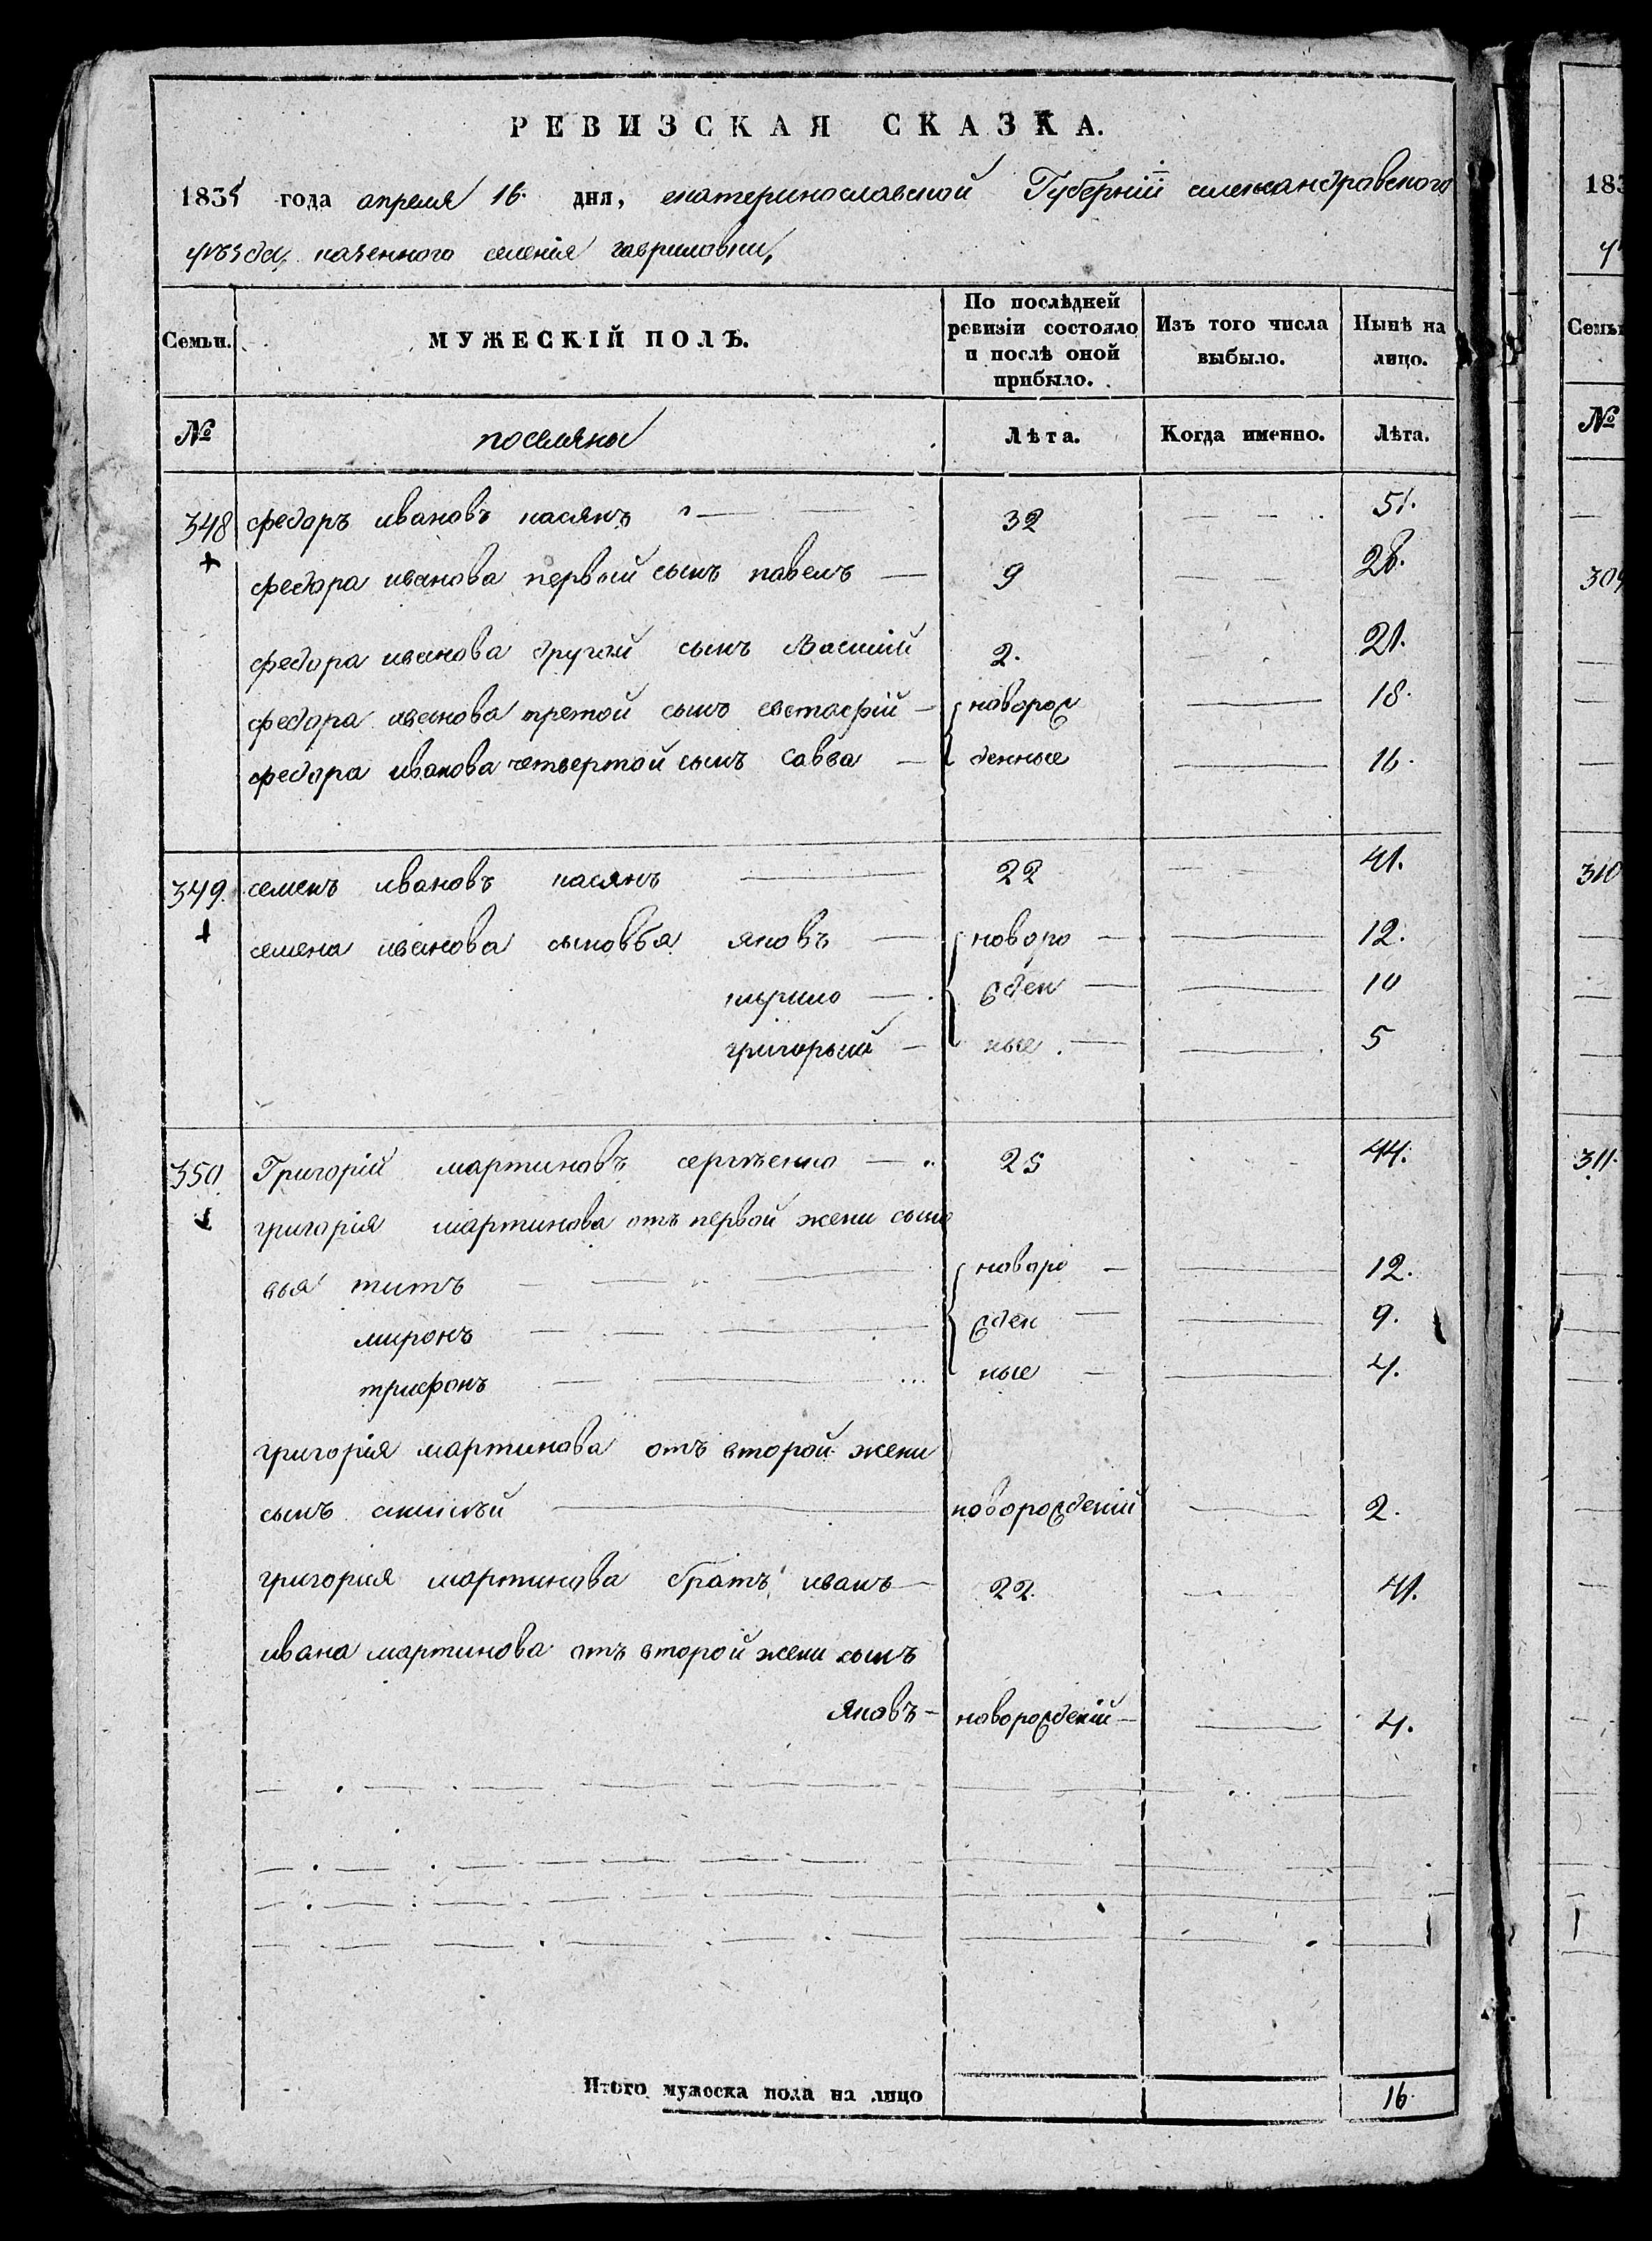 РЕВИЗСКАЯ СКАЗКА.
1835 года апреля 16 дня, екатеринославской Губерніи александравского
уѣзда, казенного селенія гавриловки,
Семьи. МУЖЕСКІЙ ПОЛЪ. По послѣдней ревизіи состояло и послѣ оной прибыло. Изъ того числа выбыло. Нынѣ на лицо.
№ поселяны Лѣта. Когда именно. Лѣта.
348 федоръ ивановъ касянъ 32 51.
федора иванова первой сынъ павелъ 9 28.
федора иванова другой сынъ Василій 2. 21.
федора иванова третой сынъ евстафій новорож 18.
федора иванова четвертой сынъ савва денные 16.
349. семенъ ивановъ касянъ 22 41.
семена иванова сыновья яковъ новоро 12.
кирило жден 10
григорый ные 5
350 Григорій мартиновъ сергѣенко 25 44.
григорія мартинова отъ первой жени сыно
вья титъ новоро 12.
миронъ жден 9.
трифонъ ные 4.
григорія мартинова отъ второй жени
сынъ алексѣй новорожденій 2.
григория мартинова братъ иванъ 22. 41.
ивана мартинова отъ второй жени сынъ
яковъ новорожденій 4.
Итого мужеска пола на лицо 16.
183
Семьи
№
309
310
311.